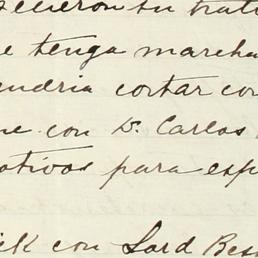 su trat
e tenga marcha
endria cortar con
ne con D. Carlos
otivos para esp
ck con Lord Bess